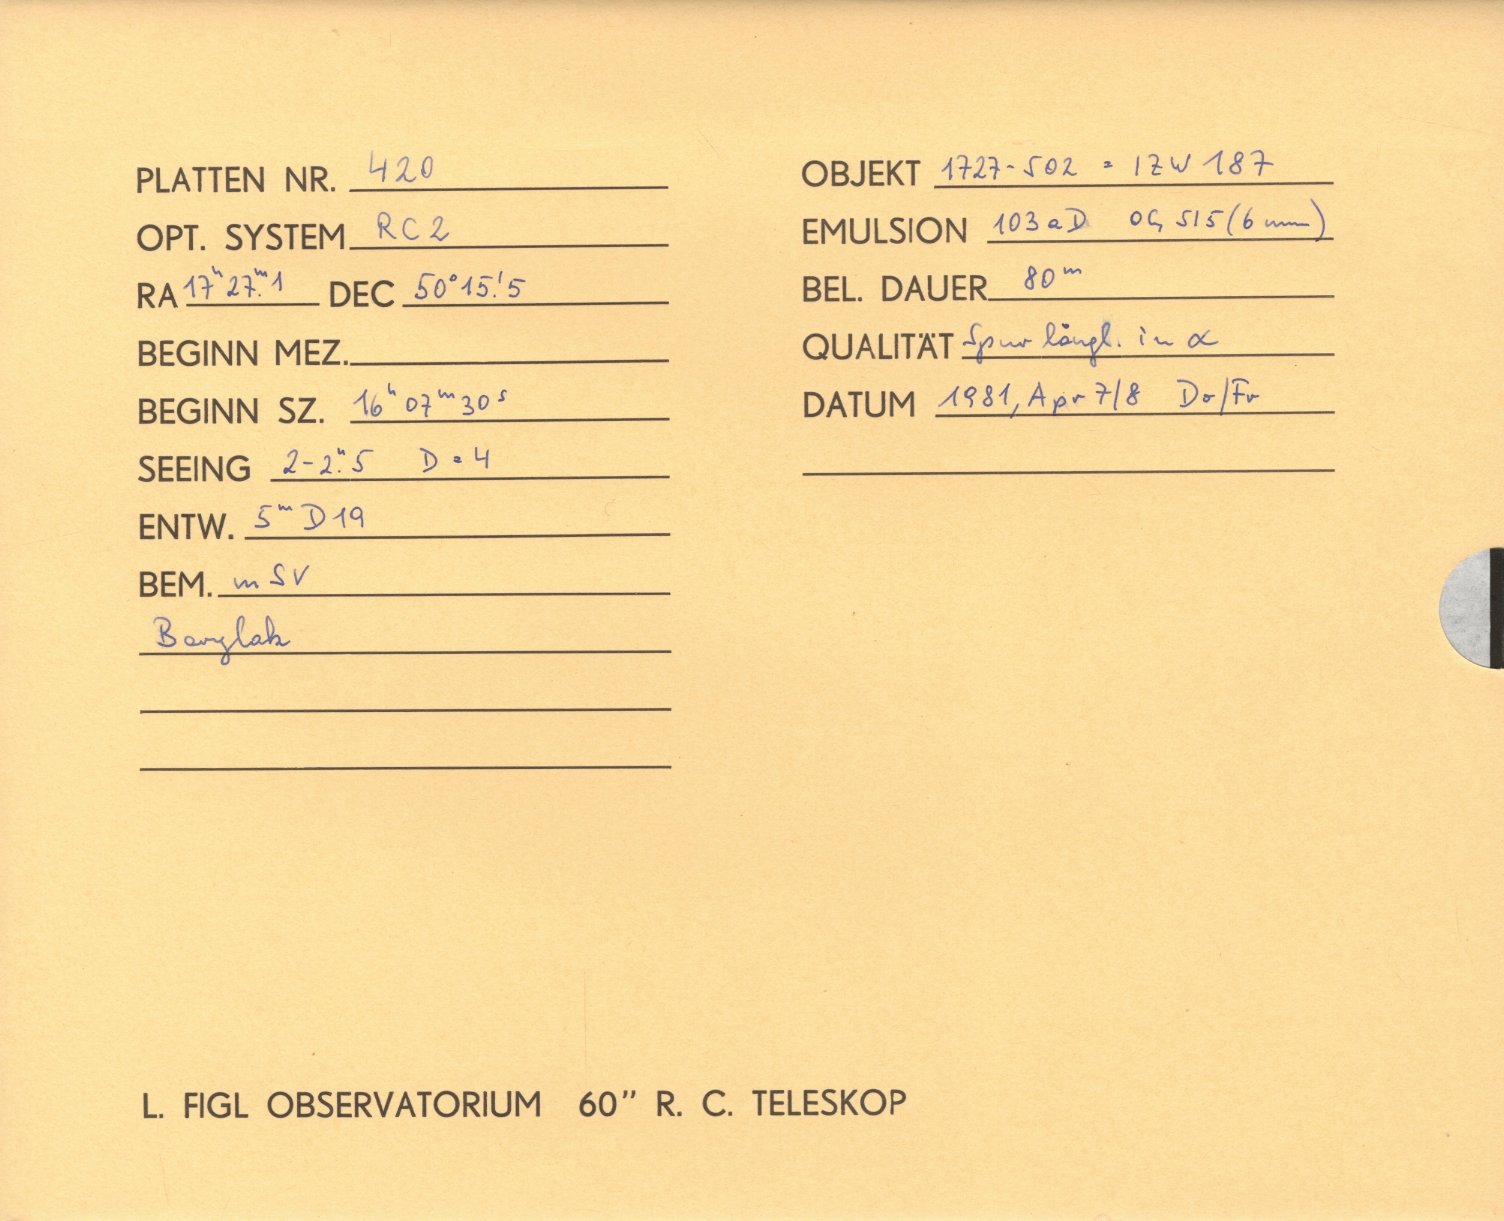 PLATTEN NR. 420
OPT. SYSTEM RC2
RA 17ʰ27ᵐ.1 DEC 50°15.'5
BEGINN MEZ.
BEGINN SZ. 16ʰ07ᵐ30ˢ
SEEING 2-2".5 D=4
ENTW. 5ᵐ D19
BEM. m SV
OBJEKT 1727-502 = IZW 187
EMULSION 103aD OG 515 (6 mm)
BEL. DAUER 80ᵐ
QUALITÄT Spur längl. in α
DATUM 1981, Apr 7/8 Do/Fr
L. FIGL OBSERVATORIUM 60" R. C. TELESKOP